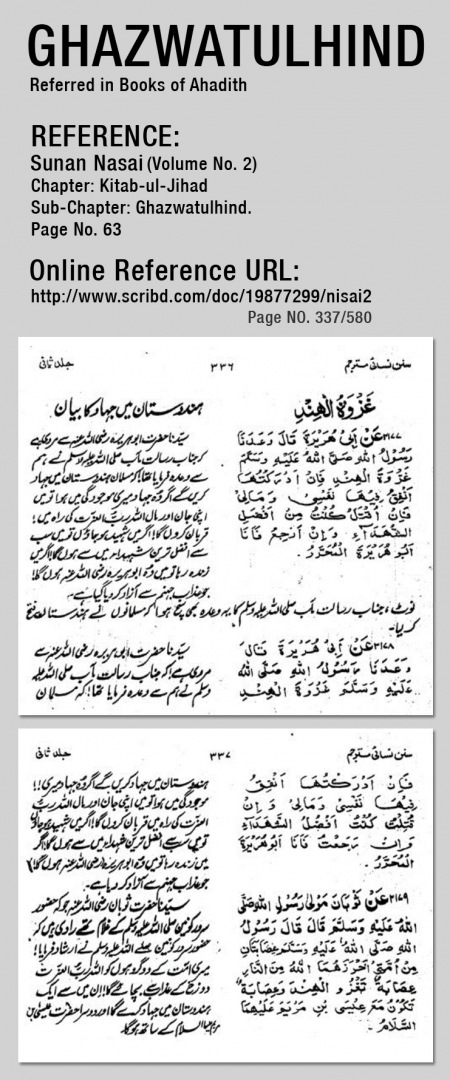 GHAZWATULHIND
Referred in Books of Ahadith
REFERENCE:
Sunan Nasai (Volume No. 2)
Chapter: Kitab-ul-Jihad
Sub-Chapter: Ghazwatulhind.
Page No. 63
Online Reference URL:
http://www.scribd.com/doc/19877299/nisai2
Page NO. 337/580
سنن نسائی مترجم ۳۳۶ جلد ثانی
غَزْوَةُ الْهِنْدِ
۳۱۷۷ عَنْ اَبِىْ هُرَيْرَةَ قَالَ وَعَدَنَا
رَسُوْلُ اللهِ صَلَّى اللهُ عَلَيْهِ وَسَلَّمَ
غَزْوَةَ الْهِنْدِ فَاِنْ اَدْرَكْتُهَا
اُنْفِقْ فِيْهَا نَفْسِىْ وَمَالِىْ
فَاِنْ اُقْتَلْ كُنْتُ مِنْ اَفْضَلِ
الشُّهَدَآءِ وَاِنْ اَرْجِعْ فَاَنَا
اَبُوْ هُرَيْرَةَ الْمُحَرَّرُ۔
ہندوستان میں جہاد کا بیان
سیّدنا حضرت ابوہریرہ رضی اللہ عنہ سے مروی ہے
کہ جناب رسالت مآب صلی اللہ علیہ وسلم نے ہم
سے وعدہ فرمایا تھا کہ مسلمان ہندوستان میں جہاد
کریں گے اگر وہ جہاد میری موجودگی میں ہوا تو میں
اپنی جان اور مال اللہ رب العزت کی راہ میں
قربان کروں گا اگر میں شہید ہو جاؤں تو میں سب
سے افضل ترین شہداء میں سے ہوں گا اگر میں
زندہ رہا تو میں وہ ابوہریرہ رضی اللہ عنہ ہوں گا
جو عذاب جہنم سے آزاد کر دیا گیا ہے۔
نوٹ، جناب رسالت مآب صلی اللہ علیہ وسلم کا یہ وعدہ بھی سچ ہوا کہ مسلمانوں نے ہندوستان فتح
کر لیا۔
۳۱۷۸ عَنْ اَبِىْ هُرَيْرَةَ قَالَ
وَعَدَنَا رَسُوْلُ اللهِ صَلَّى اللهُ
عَلَيْهِ وَسَلَّمَ غَزْوَةَ الْهِنْدِ
سیّدنا حضرت ابوہریرہ رضی اللہ عنہ سے
مروی ہے کہ جناب رسالت مآب صلی اللہ علیہ
وسلم نے ہم سے وعدہ فرمایا تھا کہ مسلمان
سنن نسائی مترجم ۳۳۷ جلد ثانی
فَاِنْ اَدْرَكْتُهَا اُنْفِقْ
فِيْهَا نَفْسِىْ وَمَالِىْ وَاِنْ
قُتِلْتُ كُنْتُ اَفْضَلَ الشُّهَدَآءِ
وَاِنْ رَجَعْتُ فَاَنَا اَبُوْهُرَيْرَةَ
الْمُحَرَّرُ۔
ہندوستان میں جہاد کریں گے اگر وہ جہاد میری
موجودگی میں ہوا تو میں اپنی جان اور مال اللہ رب
العزت کی راہ میں قربان کروں گا اگر میں شہید ہو جاؤں
تو میں سب سے افضل ترین شہداء میں سے ہوں گا اگر
میں زندہ رہا تو میں وہ ابوہریرہ رضی اللہ عنہ ہوں گا
جو عذاب جہنم سے آزاد کر دیا ہے۔
۳۱۷۹ عَنْ ثَوْبَانَ مَوْلٰى رَسُوْلِ اللهِ صَلَّى
اللهُ عَلَيْهِ وَسَلَّمَ قَالَ قَالَ رَسُوْلُ
اللهِ صَلَّى اللهُ عَلَيْهِ وَسَلَّمَ عِصَابَتَانِ
مِنْ اُمَّتِىْ اَحْرَزَهُمَا اللهُ مِنَ النَّارِ
عِصَابَةٌ تَغْزُو الْهِنْدَ وَعِصَابَةٌ
تَكُوْنُ مَعَ عِيْسَى بْنِ مَرْيَمَ عَلَيْهِمَا
السَّلَامُ۔
سیّدنا حضرت ثوبان رضی اللہ عنہ جو کہ حضور
سرور کونین صلی اللہ علیہ وسلم کے غلام تھے راوی ہیں کہ
حضور سرور کونین صلی اللہ علیہ وسلم نے ارشاد فرمایا
میری امت کے دو گروہوں کو اللہ رب العزت
دوزخ کے عذاب سے بچائے گا ان میں سے ایک
ہندوستان میں جہاد کرے گا اور دوسرا حضرت عیسیٰ بن
مریم علیہما السلام کے ساتھ ہو گا۔